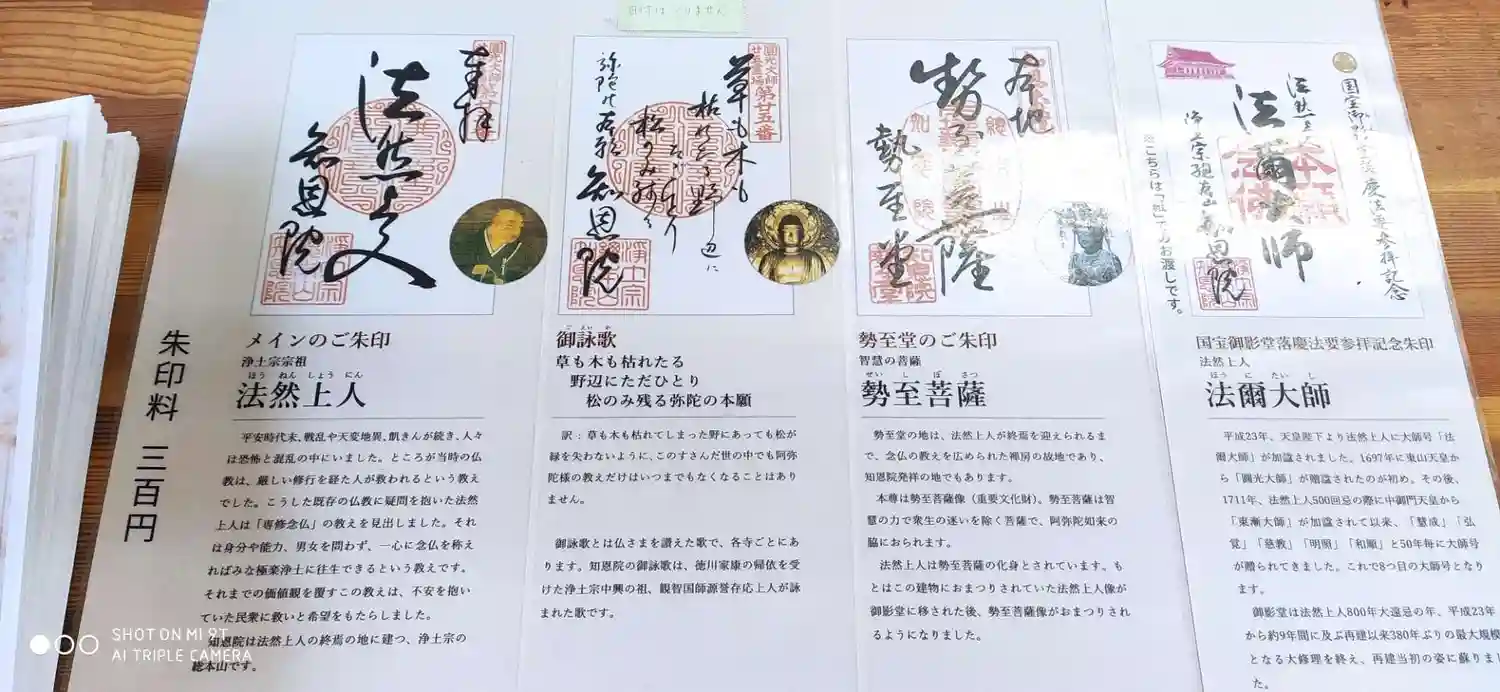 朱印料 三百円
奉拝
圓光大師
第廿五番
法然上人
知恩院
メインのご朱印
浄土宗宗祖
ほうねんしょうにん
法然上人
平安時代末、戦乱や天変地異、飢きんが続き、人々
は恐怖と混乱の中にいました。ところが当時の仏
教は、厳しい修行を経た人が救われるという教え
でした。こうした既存の仏教に疑問を抱いた法然
上人は「専修念仏」の教えを見出しました。それ
は身分や能力、男女を問わず、一心に念仏を称え
ればみな極楽浄土に往生できるという教えです。
それまでの価値観を覆すこの教えは、不安を抱い
ていた民衆に救いと希望をもたらしました。
知恩院は法然上人の終焉の地に建つ、浄土宗の
総本山です。
圓光大師
廿五霊場
第廿五番
草も木も
枯れたる野辺に
松のみ残る
弥陀の本願
知恩院
ごえいか
御詠歌
草も木も枯れたる
野辺にただひとり
松のみ残る弥陀の本願
訳：草も木も枯れてしまった野にあっても松が
緑を失わないように、このすさんだ世の中でも阿弥
陀様の教えだけはいつまでもなくなることはあり
ません。
御詠歌とは仏さまを讃えた歌で、各寺ごとにあ
ります。知恩院の御詠歌は、徳川家康の帰依を受
けた浄土宗中興の祖、観智国師源誉存応上人が詠
まれた歌です。
本地
勢至菩薩
勢至堂
勢至堂のご朱印
智慧の菩薩
せいしぼさつ
勢至菩薩
勢至堂の地は、法然上人が終焉を迎えられるま
で、念仏の教えを広められた禅房の故地であり、
知恩院発祥の地でもあります。
本尊は勢至菩薩像（重要文化財）。勢至菩薩は智
慧の力で衆生の迷いを除く菩薩で、阿弥陀如来の
脇におられます。
法然上人は勢至菩薩の化身とされています。も
とはこの建物におまつりされていた法然上人像が
御影堂に移された後、勢至菩薩像がおまつりされ
るようになりました。
国宝御影堂落慶法要参拝記念
法然上人
法爾大師
浄土宗総本山知恩院
※こちらは「紙」でお渡しです。
国宝御影堂落慶法要参拝記念朱印
法然上人
ほうにたいし
法爾大師
平成23年、天皇陛下より法然上人に大師号「法
爾大師」が加諡されました。1697年に東山天皇か
ら「圓光大師」が贈諡されたのが初め。その後、
1711年、法然上人500回忌の際に中御門天皇から
「東漸大師」が加諡されて以来、「慧成」「弘
覚」「慈教」「明照」「和順」と50年毎に大師号
が贈られてきました。これで8つ目の大師号となり
ます。
御影堂は法然上人800年大遠忌の年、平成23年
から約9年間に及ぶ再建以来380年ぶりの最大規模
となる大修理を終え、再建当初の姿に蘇りまし
た。
SHOT ON MI 9T
AI TRIPLE CAMERA